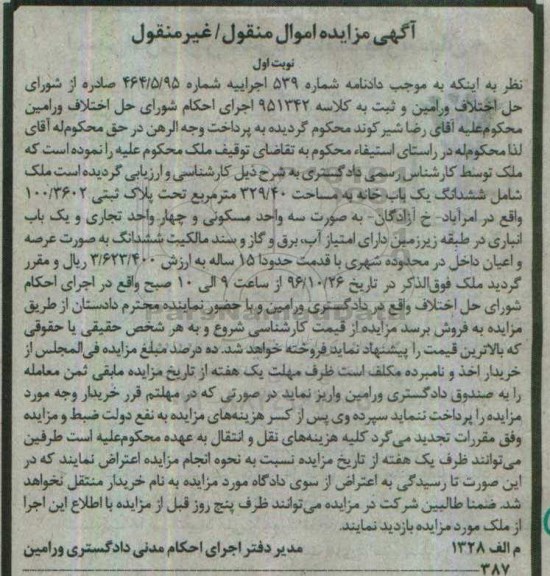 آگهی مزایده اموال منقول/غیرمنقول
نوبت اول
نظر به اینکه به موجب دادنامه شماره ۵۳۹ اجراییه شماره ۴۶۴/۵/۹۵ صادره از شورای
حل اختلاف ورامین و ثبت به کلاسه ۹۵۱۳۴۲ اجرای احکام شورای حل اختلاف ورامین
محکوم‌علیه آقای رضا شیرکوند محکوم گردیده به پرداخت وجه الرهن در حق محکوم‌له آقای
لذا محکوم‌له در راستای استیفاء محکوم به تقاضای توقیف ملک محکوم علیه را نموده است که
ملک توسط کارشناس رسمی دادگستری به شرح ذیل کارشناسی و ارزیابی گردیده است ملک
شامل ششدانگ یک باب خانه به مساحت ۳۲۹/۴۰ مترمربع تحت پلاک ثبتی ۱۰۰/۳۶۰۲
واقع در امرآباد- خ آزادگان- به صورت سه واحد مسکونی و چهار واحد تجاری و یک باب
انباری در طبقه زیرزمین دارای امتیاز آب، برق و گاز و سند مالکیت ششدانگ به صورت عرصه
و اعیان داخل در محدوده شهری با قدمت حدودا ۱۵ ساله به ارزش ۳/۶۲۳/۴۰۰ ریال و مقرر
گردید ملک فوق‌الذکر در تاریخ ۹۶/۱۰/۲۶ از ساعت ۹ الی ۱۰ صبح واقع در اجرای احکام
شورای حل اختلاف واقع در دادگستری ورامین و با حضور نماینده محترم دادستان از طریق
مزایده به فروش برسد مزایده از قیمت کارشناسی شروع و به هر شخص حقیقی یا حقوقی
که بالاترین قیمت را پیشنهاد نماید فروخته خواهد شد. ده درصد مبلغ مزایده فی‌المجلس از
خریدار اخذ و نامبرده مکلف است ظرف مهلت یک هفته از تاریخ مزایده مابقی ثمن معامله
را به صندوق دادگستری ورامین واریز نماید در صورتی که در مهلتم قرر خریدار وجه مورد
مزایده را پرداخت ننماید سپرده وی پس از کسر هزینه‌های مزایده به نفع دولت ضبط و مزایده
وفق مقررات تجدید می‌گرد کلیه هزینه‌های نقل و انتقال به عهده محکوم‌علیه است طرفین
می‌توانند ظرف یک هفته از تاریخ مزایده نسبت به نحوه انجام مزایده اعتراض نمایند که در
این صورت تا رسیدگی به اعتراض از سوی دادگاه مورد مزایده به نام خریدار منتقل نخواهد
شد. ضمنا طالبین شرکت در مزایده می‌توانند ظرف پنج روز قبل از مزایده با اطلاع این اجرا
از ملک مورد مزایده بازدید نمایند.
م الف ۱۳۲۸ مدیر دفتر اجرای احکام مدنی دادگستری ورامین
۳۸۷